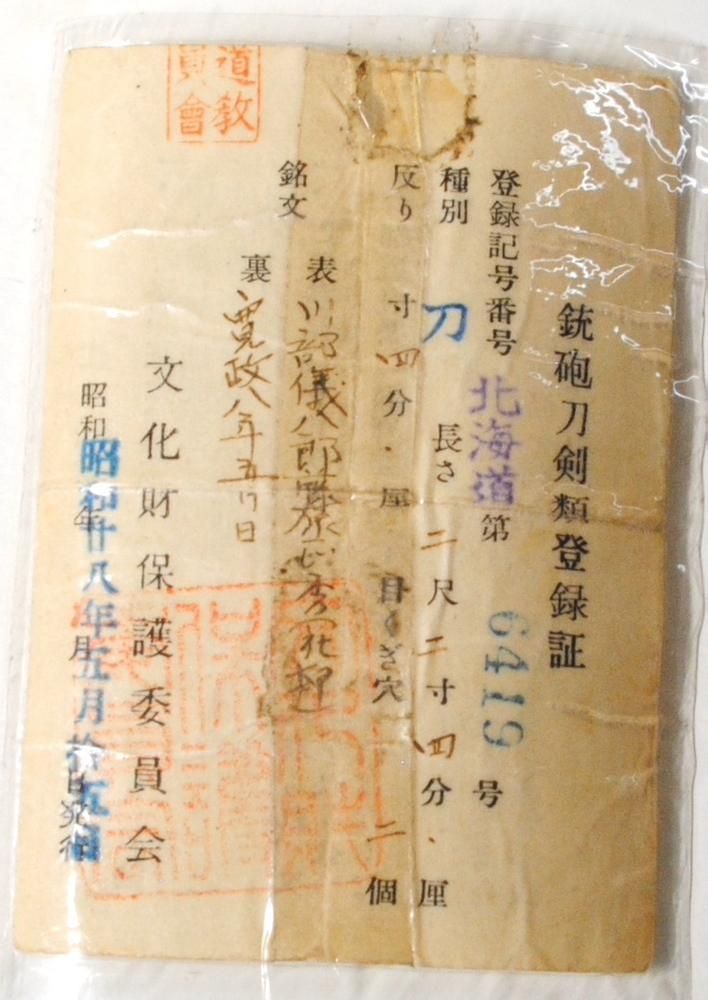 銃砲刀剣類登録証
登録記号番号 北海道 第 6419 号
種別 刀 長さ 二尺二寸四分 厘
反り 寸四分 厘 目くぎ穴 二個
銘文 表 川部儀八郎藤原正秀
裏 寛政八年五月日
文化財保護委員会
昭和 年 月 日発行
昭和廿八年五月拾五日
道教
員會